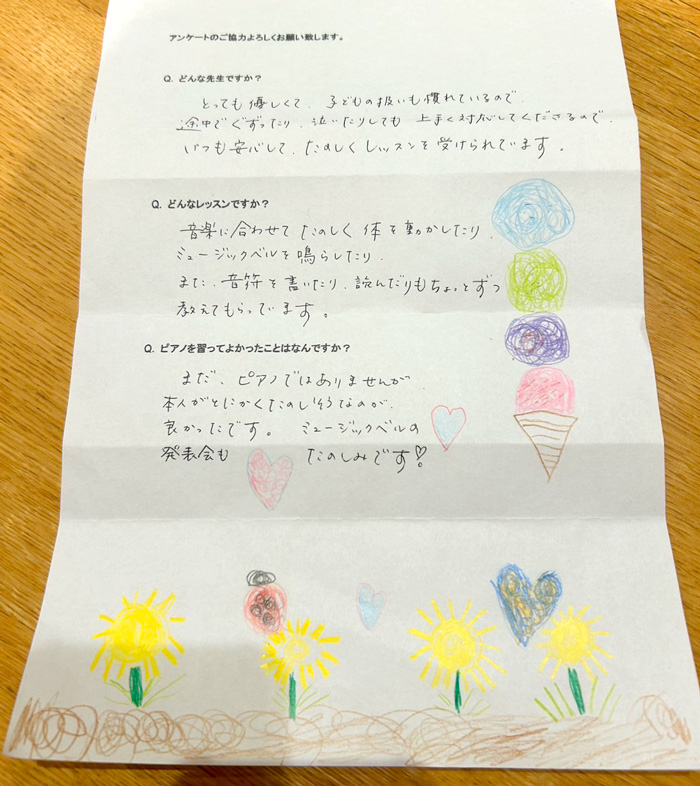 アンケートのご協力よろしくお願い致します。
Q. どんな先生ですか？
とっても優しくて、子どもの扱いも慣れているので、
途中でぐずったり、泣いたりしても 上手く対応してくださるので、
いつも安心して、たのしくレッスンを受けられています。
Q. どんなレッスンですか？
音楽に合わせて たのしく 体を動かしたり、
ミュージックベルを鳴らしたり、
また、音符を書いたり、読んだりもちょっとずつ
教えてもらっています。
Q. ピアノを習ってよかったことはなんですか？
まだ、ピアノではありませんが、
本人がとにかくたのしそうなのが、
良かったです。 ミュージックベルの
発表会も たのしみです♡!